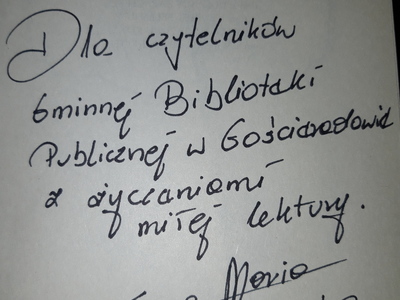 Dla czytelników
Gminnej Biblioteki
Publicznej w Gościeradowie
z życzeniami
miłej lektury.
Maria